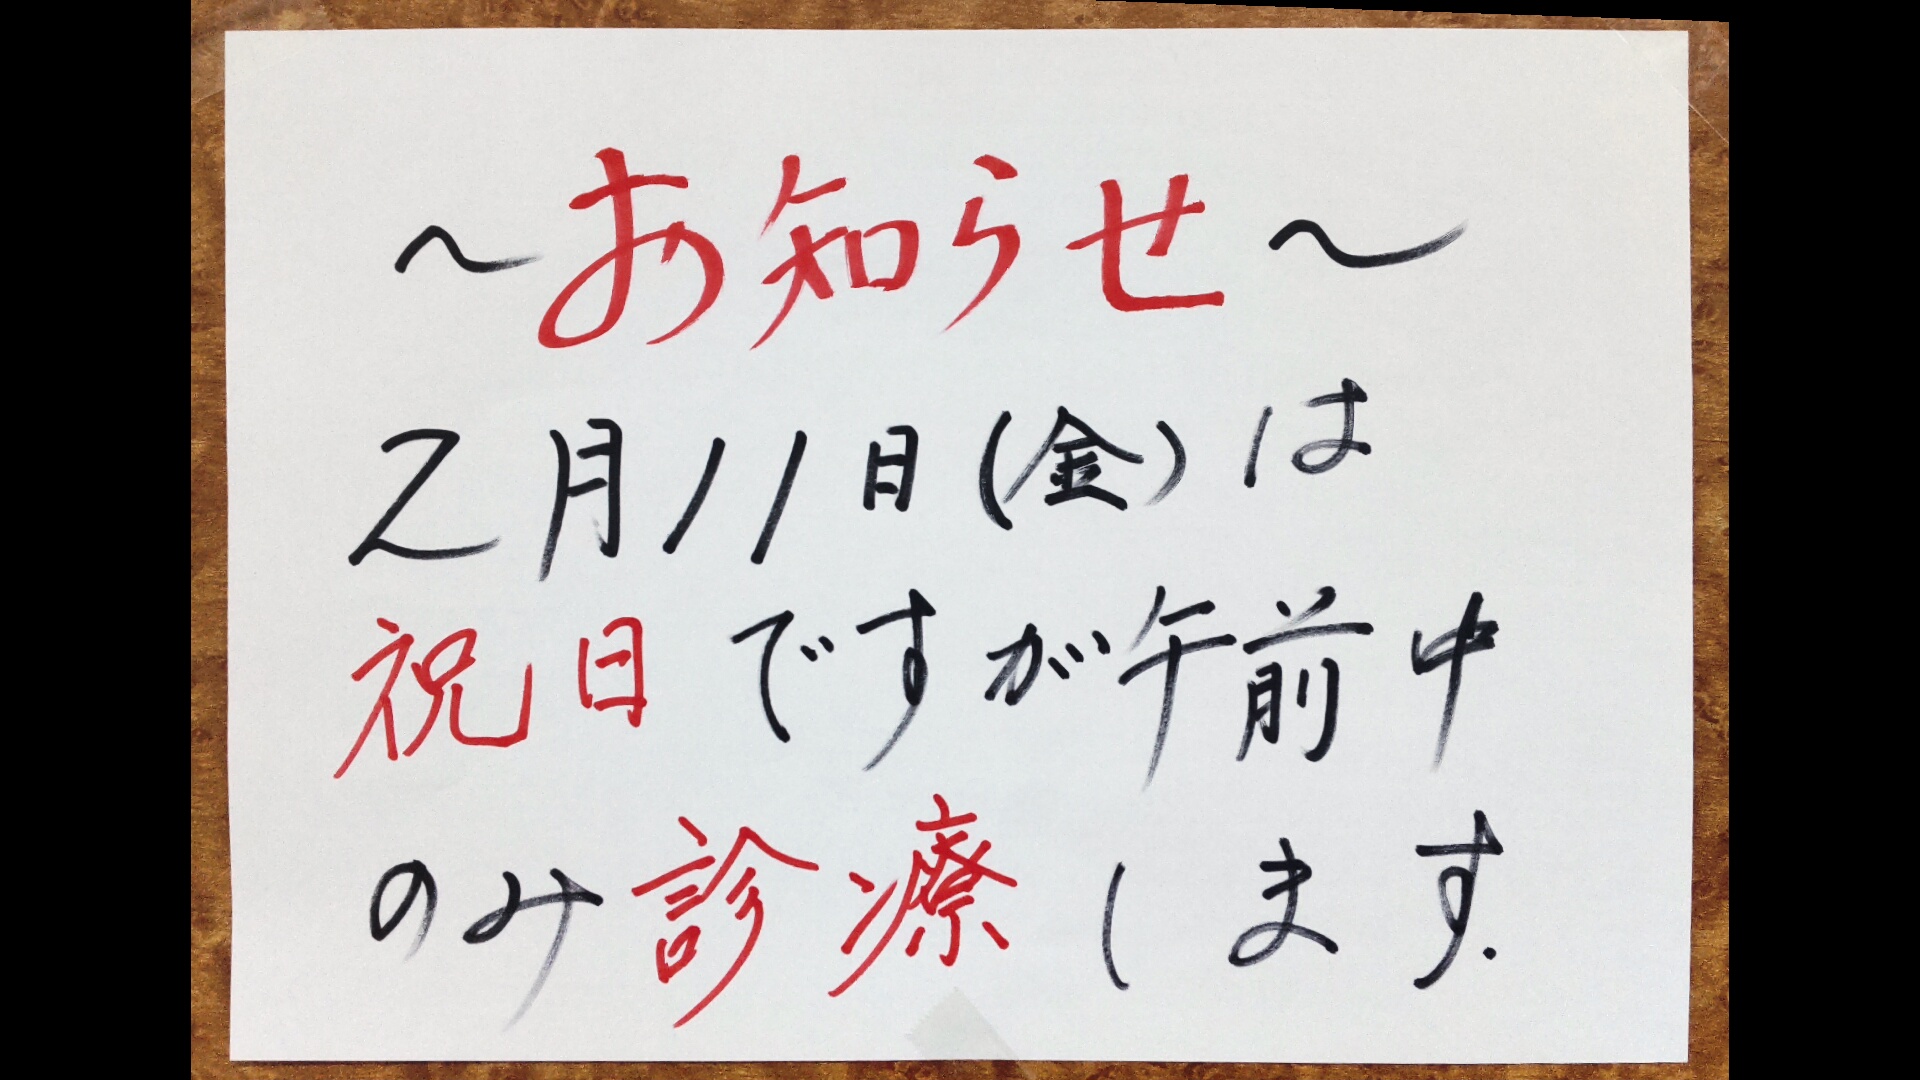 ～お知らせ～
2月11日(金)は
祝日ですが午前中
のみ診療します.